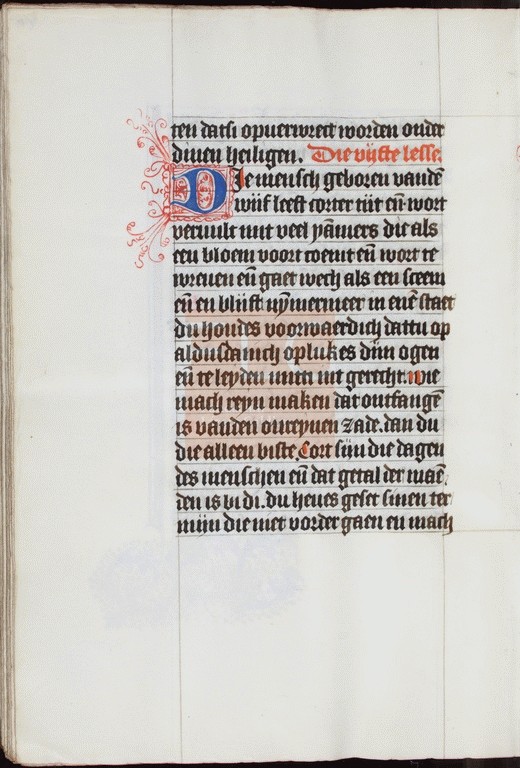 ten datsi opuerwect worden onder
dinen heiligen. Die vijfte lesse.
Die mensch geboren vandē
wijf leeft corter tijt eñ wort
veruult mit veel yām̄ers die als
een bloem voort coemt eñ wort te
wreuen eñ gaet wech als een sceem
eñ en blijft nȳmermeer in enē staet
du houdes voorwaerdich dattu op
aldusdanich oplukes dijn ogen
eñ te leyden mitti int gerecht. wie
mach reyn maken dat ontfangē
is vanden onreynen zade. dan du
die alleen biste. Cort sijn die dagen
des menschen eñ dat getal der maē
den is bi di. du heues geset sinen ter
mijn die niet vorder gaen en mach